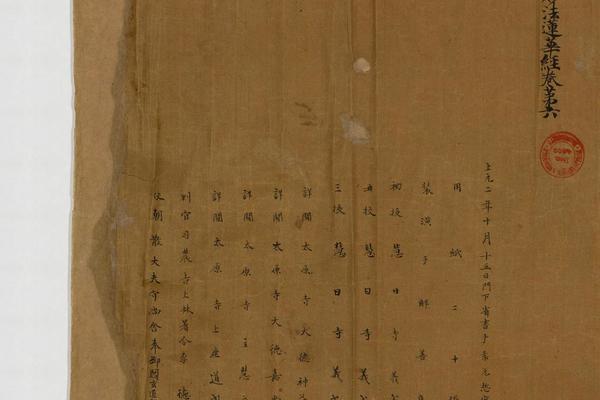 法蓮華經卷第六
上元二年十月十五日門下省書手
用紙二十
裝潢手解善
初校慧日寺義
再校慧日寺義
三校慧日寺義
詳閱太原寺大德神
詳閱太原寺大德嘉
詳閱太原寺寺主慧
詳閱太原寺上座道
判官司農寺上林署令李德
使朝散大夫守尚舍奉御閻玄道